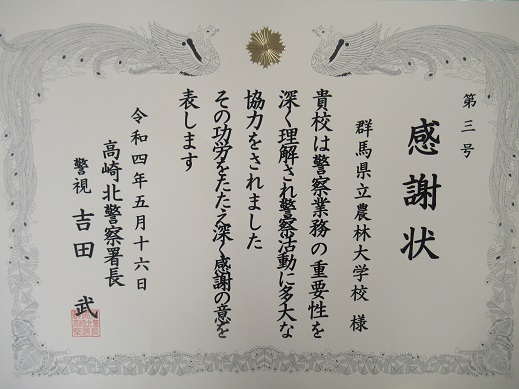 第三号
感謝状
群馬県立農林大学校 様
貴校は警察業務の重要性を
深く理解され警察活動に多大な
協力をされました
その功労をたたえ深く感謝の意を
表します
令和四年五月十六日
高崎北警察署長
警視 吉田 武